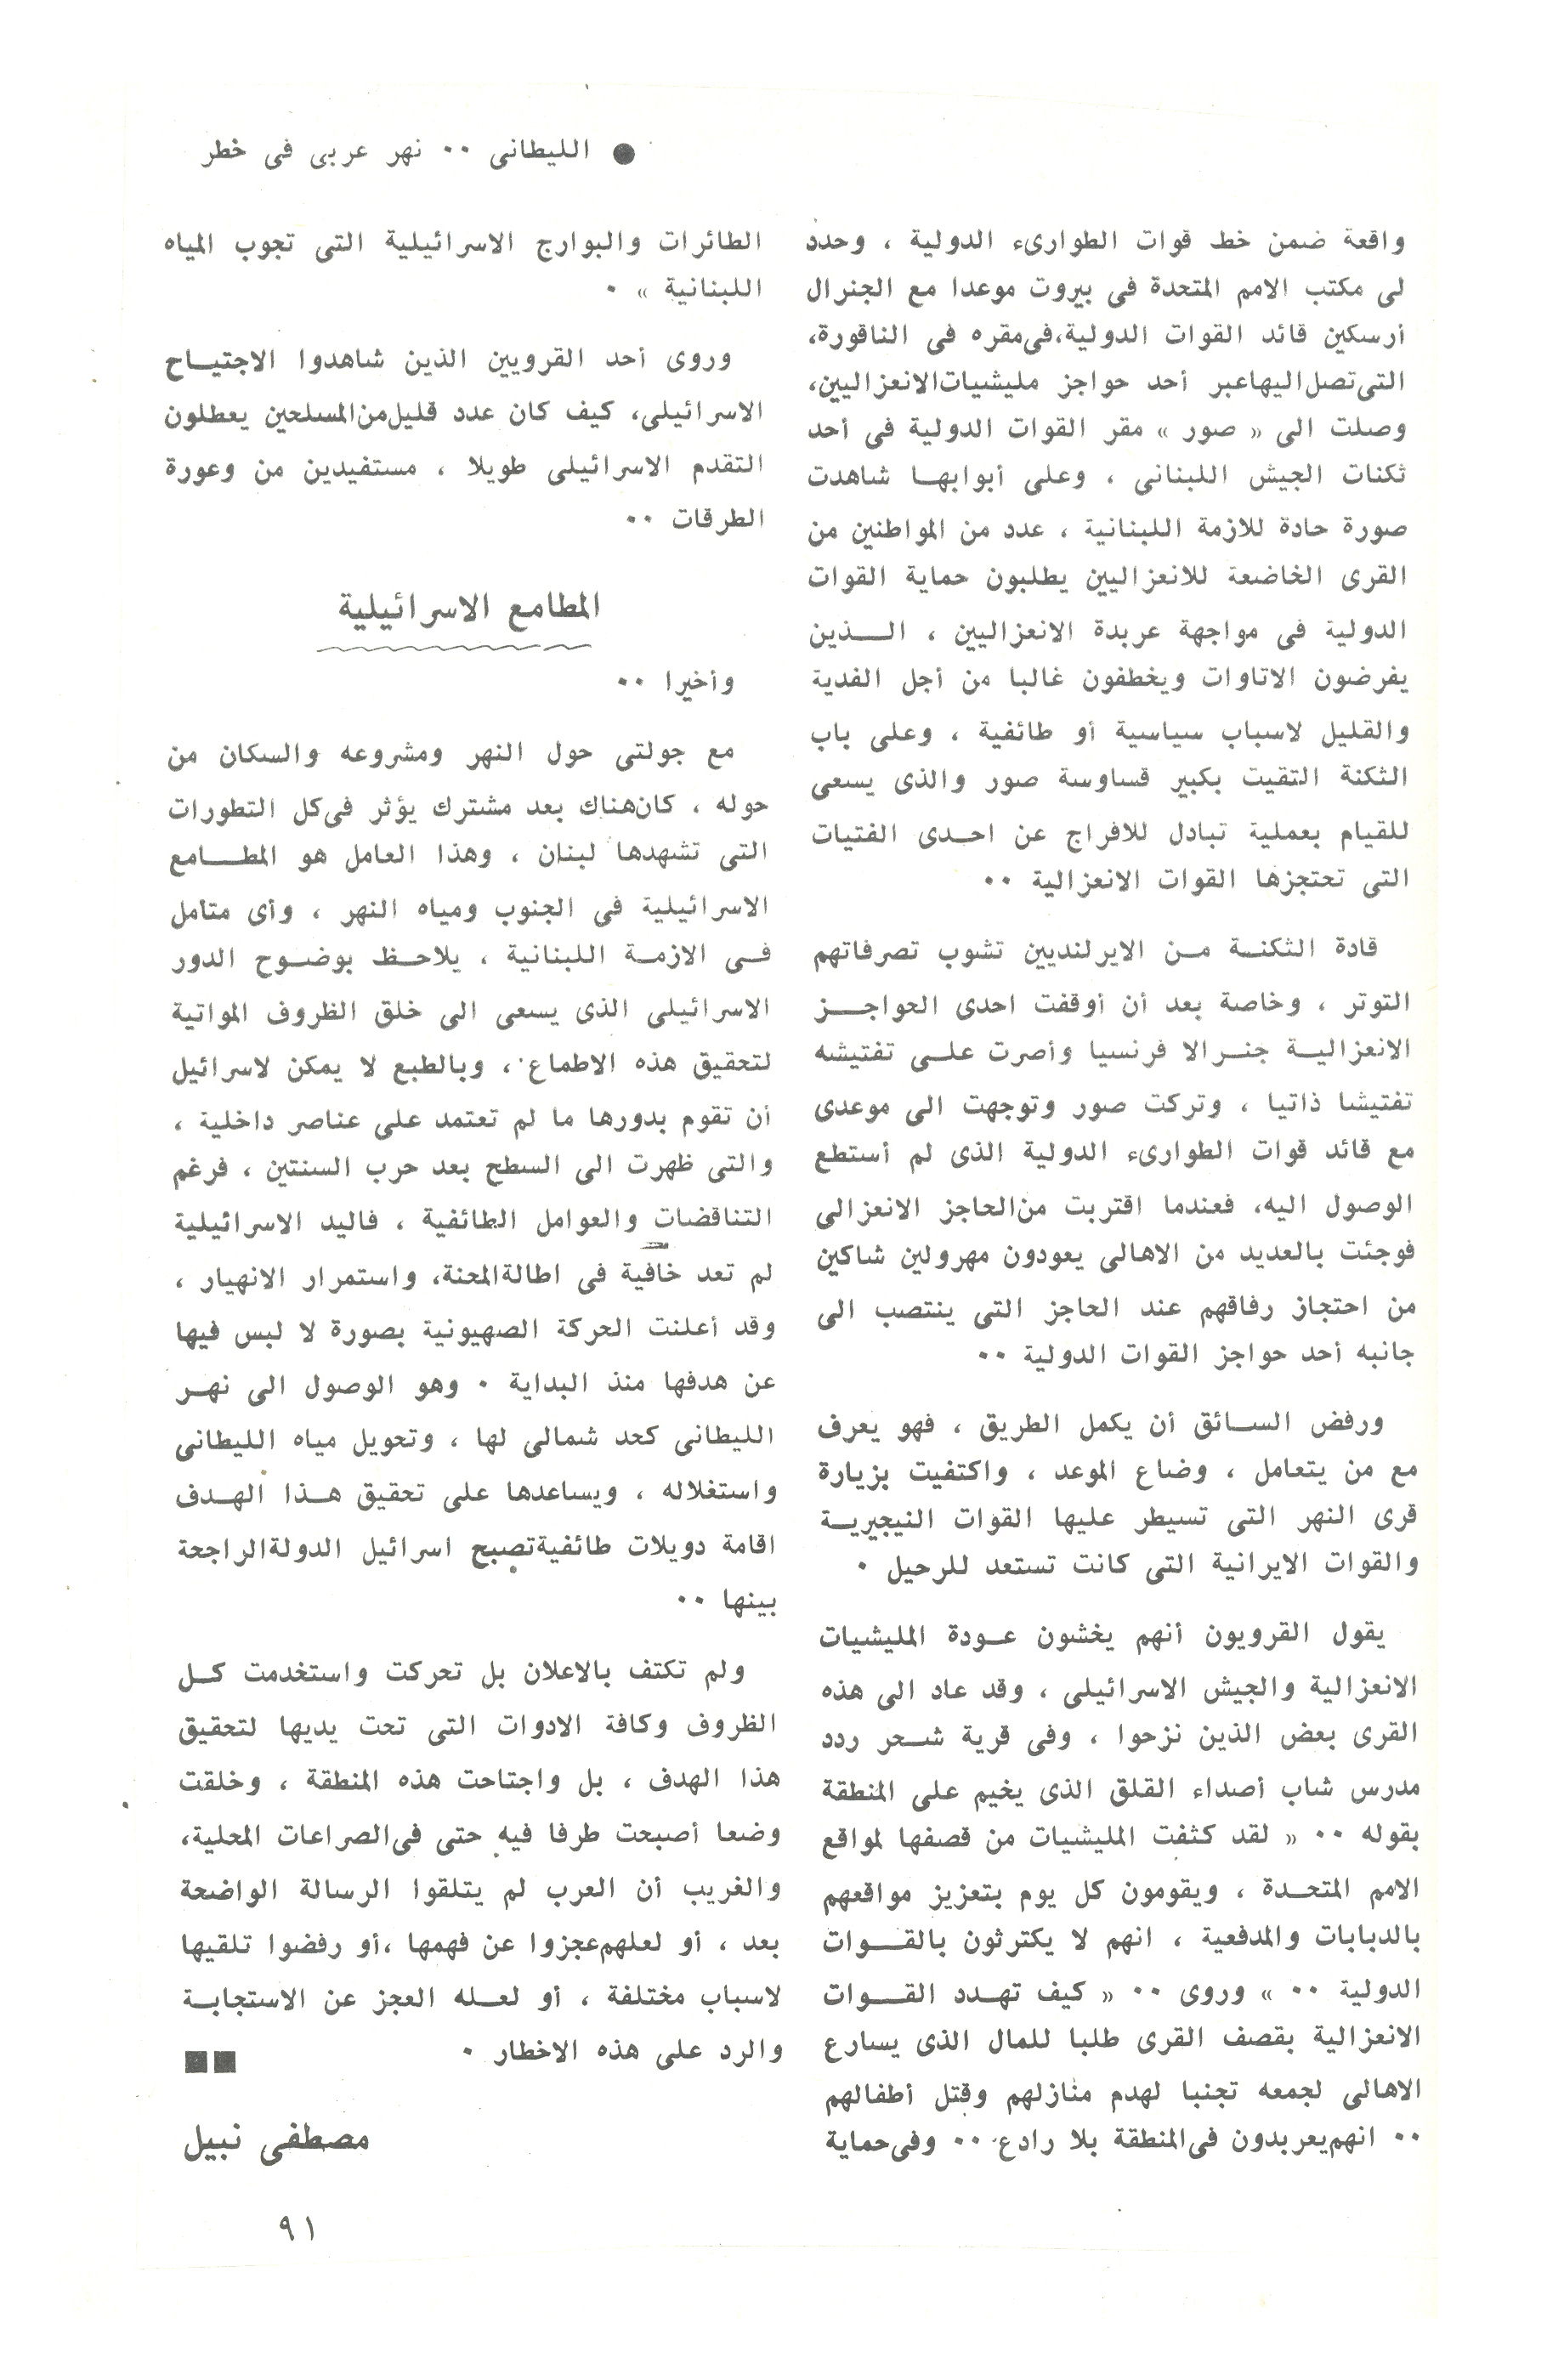 ● الليطانى ٠٠ نهر عربى فى خطر
واقعة ضمن خط قوات الطوارىء الدولية ، وحدد
لى مكتب الامم المتحدة فى بيروت موعدا مع الجنرال
أرسكين قائد القوات الدولية،فى مقره فى الناقورة،
التى تصل اليها عبر أحد حواجز مليشيات الانعزاليين،
وصلت الى « صور » مقر القوات الدولية فى أحد
ثكنات الجيش اللبنانى ، وعلى أبوابها شاهدت
صورة حادة للازمة اللبنانية ، عدد من المواطنين من
القرى الخاضعة للانعزاليين يطلبون حماية القوات
الدولية فى مواجهة عربدة الانعزاليين ، الذين
يفرضون الاتاوات ويخطفون غالبا من أجل الفدية
والقليل لاسباب سياسية أو طائفية ، وعلى باب
الثكنة التقيت بكبير قساوسة صور والذى يسعى
للقيام بعملية تبادل للافراج عن احدى الفتيات
التى تحتجزها القوات الانعزالية ٠٠
قادة الثكنة من الايرلنديين تشوب تصرفاتهم
التوتر ، وخاصة بعد أن أوقفت احدى الحواجز
الانعزالية جنرالا فرنسيا وأصرت على تفتيشه
تفتيشا ذاتيا ، وتركت صور وتوجهت الى موعدى
مع قائد قوات الطوارىء الدولية الذى لم أستطع
الوصول اليه، فعندما اقتربت من الحاجز الانعزالى
فوجئت بالعديد من الاهالى يعودون مهرولين شاكين
من احتجاز رفاقهم عند الحاجز التى ينتصب الى
جانبه أحد حواجز القوات الدولية ٠٠
ورفض السائق أن يكمل الطريق ، فهو يعرف
مع من يتعامل ، وضاع الموعد ، واكتفيت بزيارة
قرى النهر التى تسيطر عليها القوات النيجيرية
والقوات الايرانية التى كانت تستعد للرحيل ٠
يقول القرويون أنهم يخشون عودة المليشيات
الانعزالية والجيش الاسرائيلى ، وقد عاد الى هذه
القرى بعض الذين نزحوا ، وفى قرية شحر ردد
مدرس شاب أصداء القلق الذى يخيم على المنطقة
بقوله ٠٠ « لقد كثفت المليشيات من قصفها لمواقع
الامم المتحدة ، ويقومون كل يوم بتعزيز مواقعهم
بالدبابات والمدفعية ، انهم لا يكترثون بالقوات
الدولية ٠٠ » وروى ٠٠ « كيف تهدد القوات
الانعزالية بقصف القرى طلبا للمال الذى يسارع
الاهالى لجمعه تجنبا لهدم منازلهم وقتل أطفالهم
٠٠ انهم يعربدون فى المنطقة بلا رادع ٠٠ وفى حماية
الطائرات والبوارج الاسرائيلية التى تجوب المياه
اللبنانية » ٠
وروى أحد القرويين الذين شاهدوا الاجتياح
الاسرائيلى، كيف كان عدد قليل من المسلحين يعطلون
التقدم الاسرائيلى طويلا ، مستفيدين من وعورة
الطرقات ٠٠
المطامع الاسرائيلية
وأخيرا ٠٠
مع جولتى حول النهر ومشروعه والسكان من
حوله ، كان هناك بعد مشترك يؤثر فى كل التطورات
التى تشهدها لبنان ، وهذا العامل هو المطامع
الاسرائيلية فى الجنوب ومياه النهر ، وأى متامل
فى الازمة اللبنانية ، يلاحظ بوضوح الدور
الاسرائيلى الذى يسعى الى خلق الظروف المواتية
لتحقيق هذه الاطماع ، وبالطبع لا يمكن لاسرائيل
أن تقوم بدورها ما لم تعتمد على عناصر داخلية ،
والتى ظهرت الى السطح بعد حرب السنتين ، فرغم
التناقضات والعوامل الطائفية ، فاليد الاسرائيلية
لم تعد خافية فى اطالة المحنة، واستمرار الانهيار ،
وقد أعلنت الحركة الصهيونية بصورة لا لبس فيها
عن هدفها منذ البداية ٠ وهو الوصول الى نهر
الليطانى كحد شمالى لها ، وتحويل مياه الليطانى
واستغلاله ، ويساعدها على تحقيق هذا الهدف
اقامة دويلات طائفية تصبح اسرائيل الدولة الراجحة
بينها ٠٠
ولم تكتف بالاعلان بل تحركت واستخدمت كل
الظروف وكافة الادوات التى تحت يديها لتحقيق
هذا الهدف ، بل واجتاحت هذه المنطقة ، وخلقت
وضعا أصبحت طرفا فيه حتى فى الصراعات المحلية،
والغريب أن العرب لم يتلقوا الرسالة الواضحة
بعد ، أو لعلهم عجزوا عن فهمها ،أو رفضوا تلقيها
لاسباب مختلفة ، أو لعله العجز عن الاستجابة
والرد على هذه الاخطار ٠ ■■
مصطفى نبيل
٩١